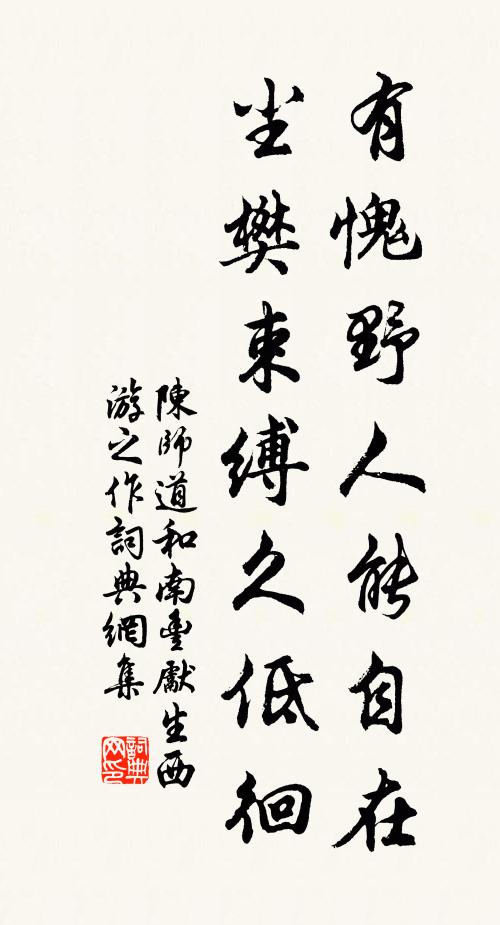 有愧野人能自在
尘樊束缚久低徊
陳師道和南豐獻生西
游之作詞典網集
詞典
网印